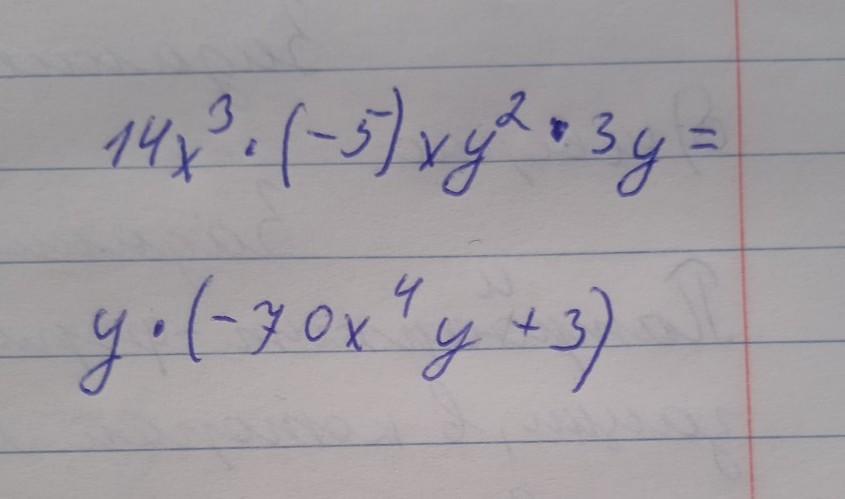 14x³ · (-5)xy² · 3y =
y · (-70x⁴y + 3)